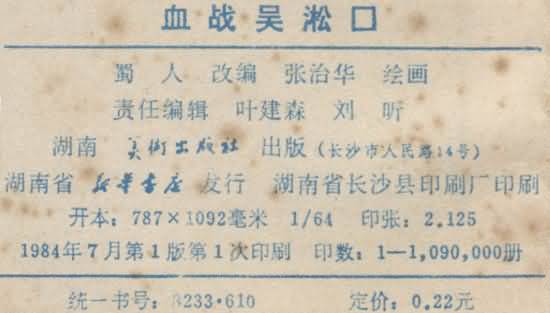 血战吴淞口
蜀 人 改编 张治华 绘画
责任编辑 叶建森 刘 昕
湖南 美术出版社 出版（长沙市人民路14号）
湖南省 新华书店 发行 湖南省长沙县印刷厂印刷
开本：787×1092毫米 1/64 印张：2.125
1984年7月第1版第1次印刷 印数：1—1,090,000册
统一书号：8233·610 定价：0.22元